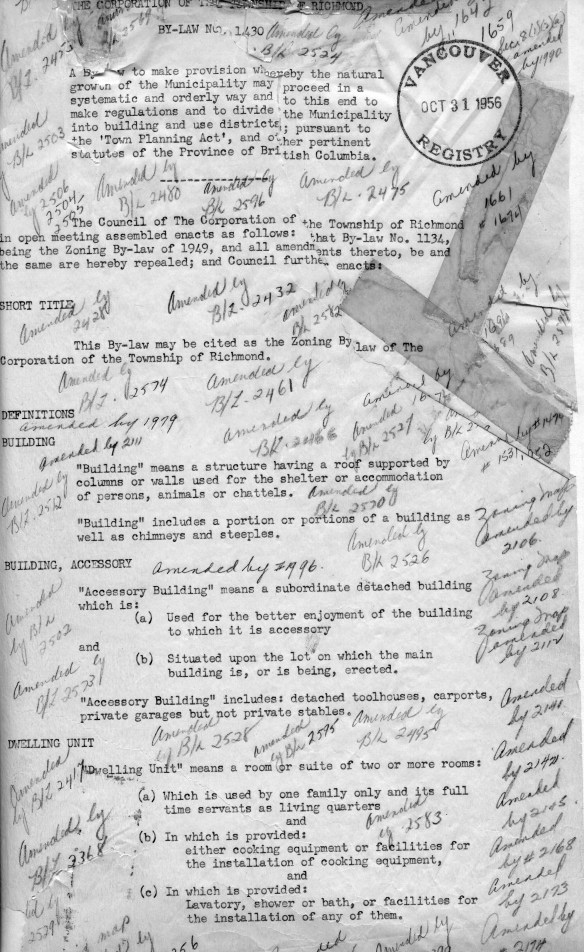 THE CORPORATION OF THE TOWNSHIP OF RICHMOND
BY-LAW NO. 1430
Amended by
B/L 2524
Amended
by 1642
1659
amended
by 1990
Amended
B/L 2453
VANCOUVER
OCT 31 1956
REGISTRY
A By-law to make provision whereby the natural
growth of the Municipality may proceed in a
systematic and orderly way and to this end to
make regulations and to divide the Municipality
into building and use districts; pursuant to
the 'Town Planning Act', and other pertinent
statutes of the Province of British Columbia.
Amended
B/L 2503
Amended
by 2506
2504
Amended by
B/L 2480
Amended by
B/L 2596
Amended by
B/L 2475
Amended by
1661
The Council of The Corporation of the Township of Richmond
in open meeting assembled enacts as follows: that By-law No. 1134,
being the Zoning By-law of 1949, and all amendments thereto, be and
the same are hereby repealed; and Council further enacts:
SHORT TITLE
Amended by
2428
Amended by
B/L 2432
Amended by
B/L 2582
This By-law may be cited as the Zoning By law of The
Corporation of the Township of Richmond.
Amended by
B/L 2574
Amended by
B/L 2461
Amended by
DEFINITIONS
Amended by 1979
Amended by
Amended
by B/L 2527
BUILDING
Amended by 2111
"Building" means a structure having a roof supported by
columns or walls used for the shelter or accommodation
of persons, animals or chattels.
Amended by
B/L 2570
Amended by
B/L 2512
"Building" includes a portion or portions of a building as
well as chimneys and steeples.
Zoning Map
amended by
2106.
Amended by
B/L 2526
BUILDING, ACCESSORY
Amended by #1996.
"Accessory Building" means a subordinate detached building
which is:
Zoning Map
amended
by 2108
(a) Used for the better enjoyment of the building
to which it is accessory
Amended
by B/L
2502
and
Zoning Map
amended
by 2112
(b) Situated upon the lot on which the main
building is, or is being, erected.
Amended by
B/L 2573
"Accessory Building" includes: detached toolhouses, carports,
private garages but not private stables.
Amended
by B/L 2528
Amended
by B/L 2595
Amended by
B/L 2495
Amended
by 2141
DWELLING UNIT
"Dwelling Unit" means a room or suite of two or more rooms:
Amended
by B/L 2417
Amended
by 2142
(a) Which is used by one family only and its full
time servants as living quarters
and
Amended
by 2583
Amended
by 2105
(b) In which is provided:
either cooking equipment or facilities for
the installation of cooking equipment,
and
Amended by
B/L 2368
Amended
by # 2168
(c) In which is provided:
Lavatory, shower or bath, or facilities for
the installation of any of them.
Amended
by 2173
Amended by
Amended by
2174